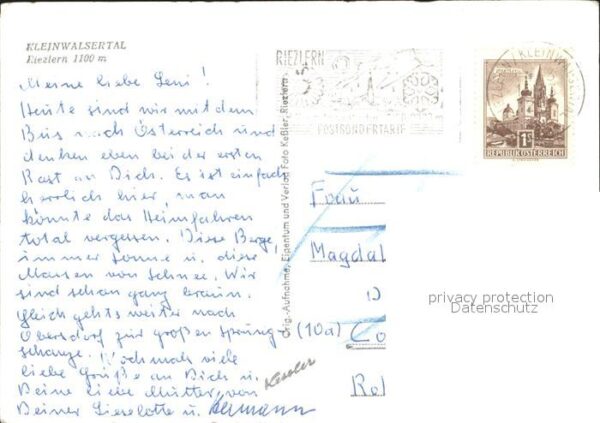 KLEINWALSERTAL
Riezlern 1100 m
Meine liebe Leni!
Heute sind wir mit dem
Bus nach Österreich und
denken eben bei der ersten
Rast an Dich. Es ist einfach
herrlich hier, man
könnte das Heimfahren
total vergessen. Diese Berge,
immer Sonne u. diese
Massen von Schnee. Wir
sind schon ganz braun.
Gleich gehts weiter nach
Obersdorf zur großen Sprung-
schanze. Noch mals viele
liebe Grüße an Dich u.
Deine liebe Mutter, von
Deiner Lieselotte u. Hermann
Kessler
Orig.-Aufnahme, Eigentum und Verlag Foto Keßler, Riezlern
RIEZLERN
POSTSONDERTARIF
KLEINWALSERTAL
1S
REPUBLIK ÖSTERREICH
Frau
Magdal
D
(10a) Co
Rel
privacy protection
Datenschutz